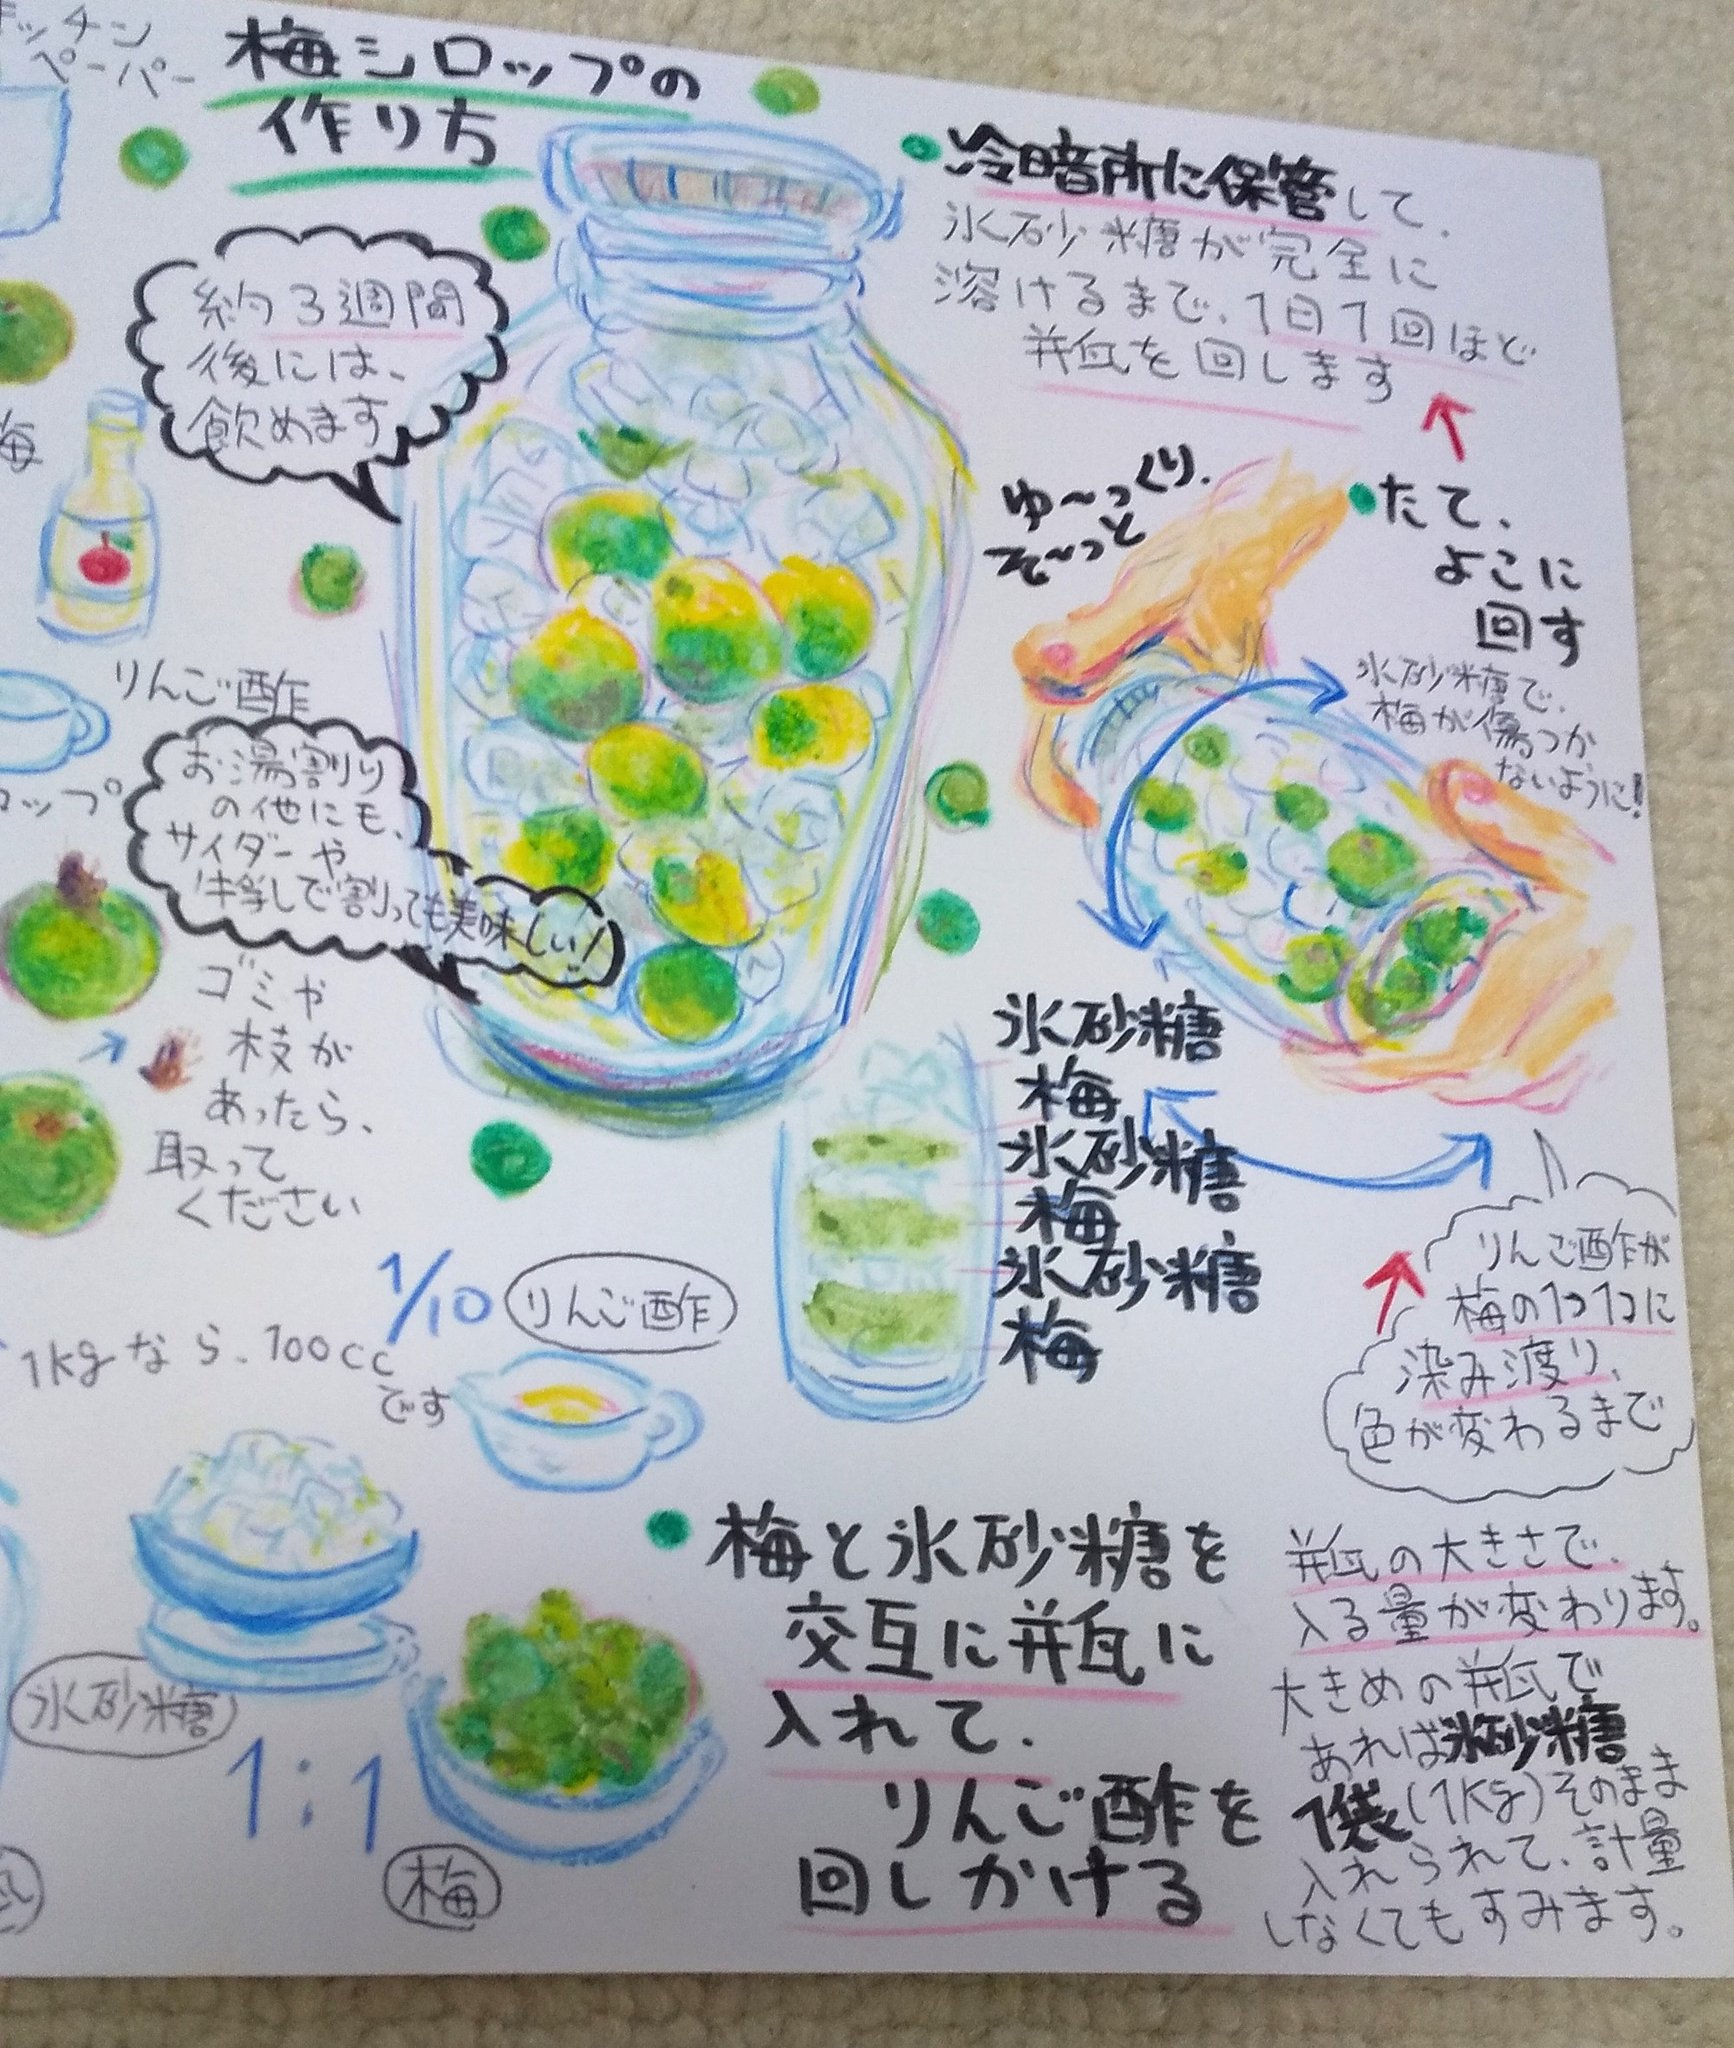 キッチン
ペーパー
梅シロップの
作り方
約3週間
後には、
飲めます
梅
りんご酢
お湯割り
の他にも、
サイダーや
牛乳で割っても美味しい!
ゴミや
枝が
あったら、
取って
ください
1/10
りんご酢
1kgなら、100cc
です
氷砂糖
1:1
梅
冷暗所に保管して、
氷砂糖が完全に
溶けるまで、1日1回ほど
瓶を回します
ゆ〜っくり、
そ〜っと
たて、
よこに
回す
氷砂糖で、
梅が傷つか
ないように!
氷砂糖
梅
氷砂糖
梅
氷砂糖
梅
りんご酢が
梅の1コ1コに
染み渡り、
色が変わるまで
梅と氷砂糖を
交互に瓶に
入れて、
りんご酢を
回しかける
瓶の大きさで、
入る量が変わります。
大きめの瓶で
あれば氷砂糖
1袋(1Kg)そのまま
入れられて、計量
しなくてもすみます。